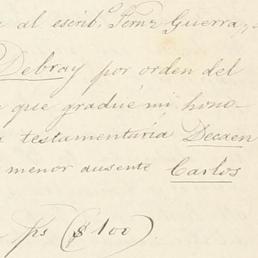 al escrib.º Fern.z Guerra,
Debray por orden del
que gradué mi hono-
testamentaría Decaen
menor ausente Carlos
ps ($100).